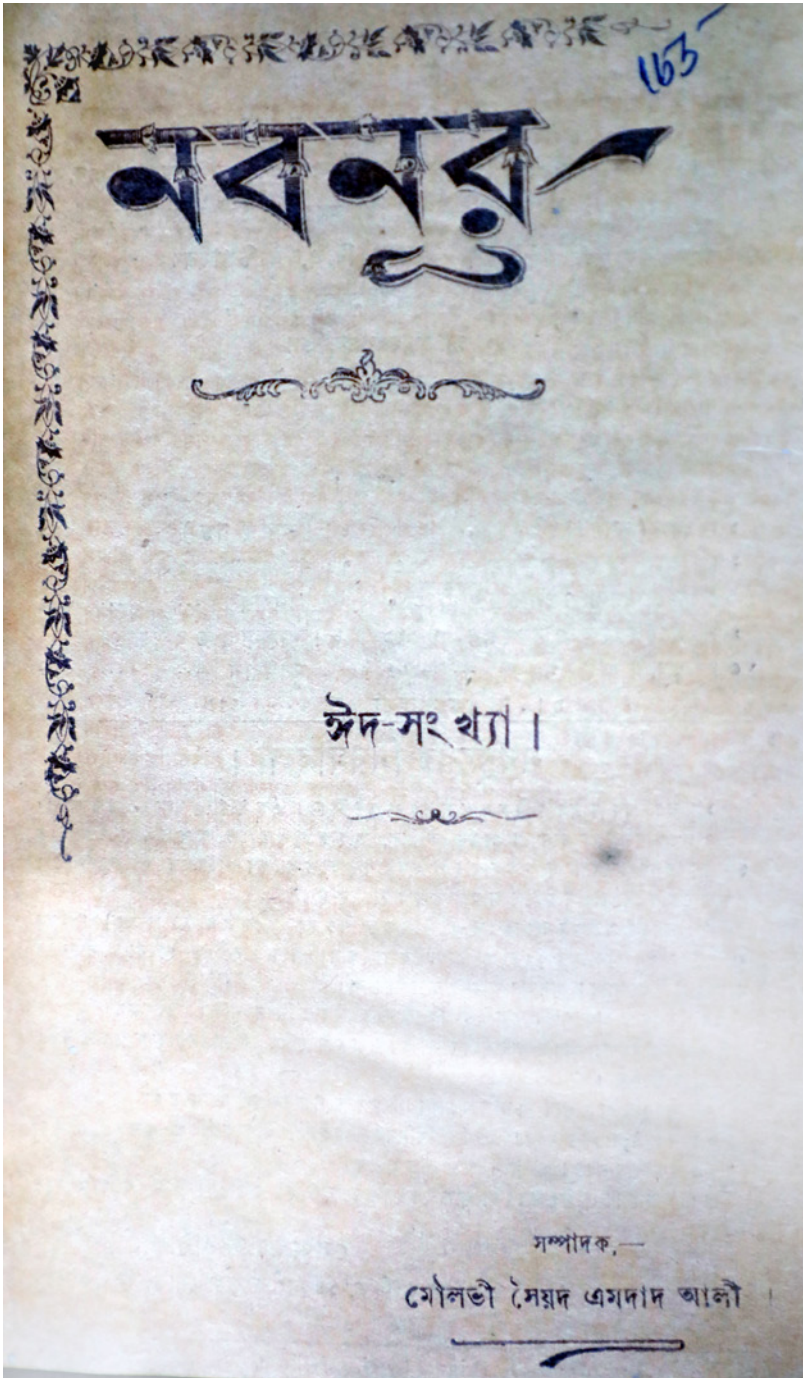 নবনূর
ঈদ-সংখ্যা।
সম্পাদক,—
মৌলভী সৈয়দ এমদাদ আলী